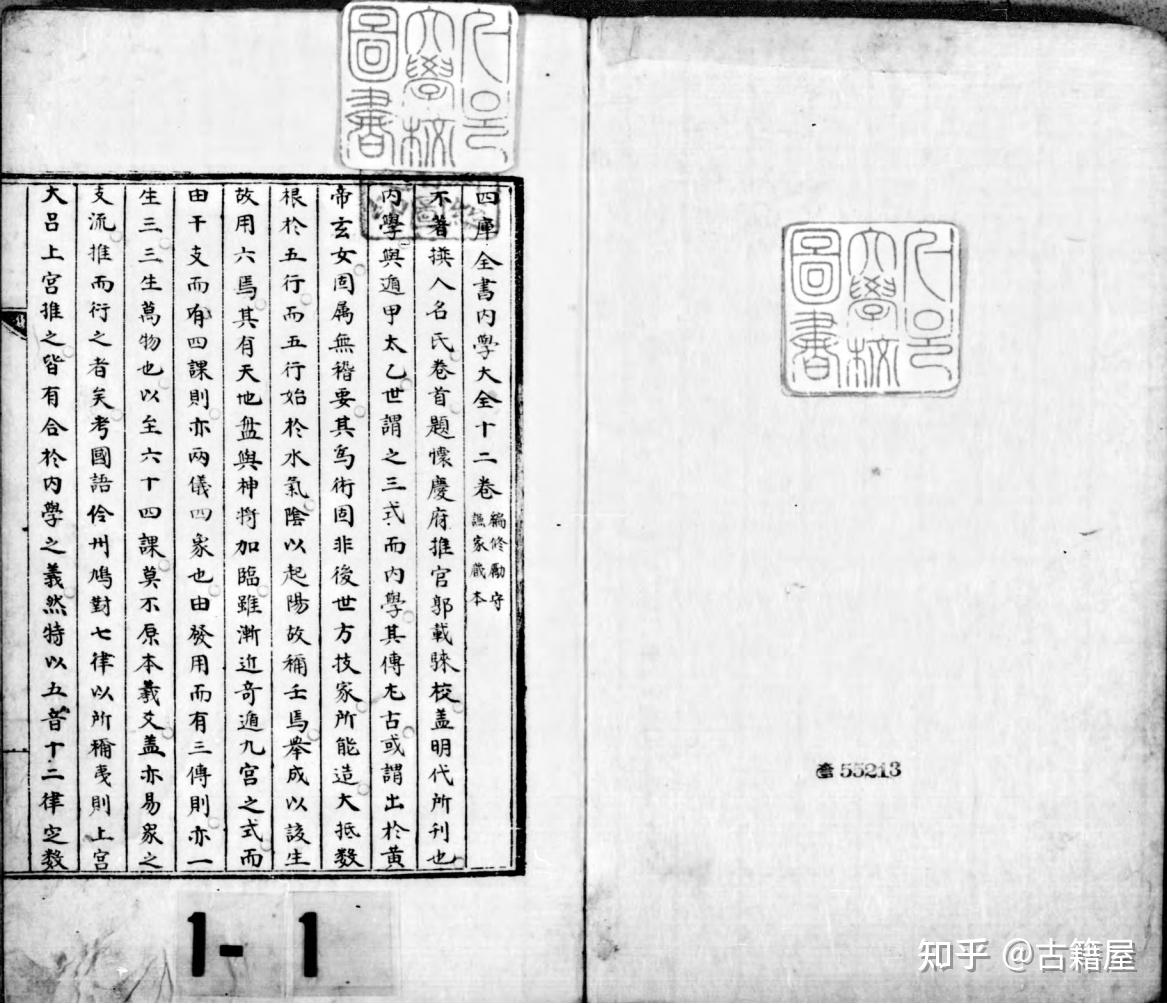 四庫全書内學大全十二卷 編修勵守
謙家藏本
不著撰人名氏卷首題懷慶府推官郭載騋校盖明代所刊也
内學與遁甲太乙世謂之三式而内學其傳尤古或謂出於黃
帝玄女固屬無稽要其為術固非後世方技家所能造大抵數
根於五行而五行始於水氣陰以起陽故稱壬焉舉成以該生
故用六焉其有天地盤與神將加臨雖漸近奇遁九宮之式而
由干支而有四課則亦兩儀四象也由發用而有三傳則亦一
生三三生萬物也以至六十四課莫不原本羲爻盖亦易象之
支流推而衍之者矣考國語伶州鳩對七律以所稱夷則上宮
大呂上宮推之皆有合於内學之義然特以五音十二律定數
大學校
圖書
大學校
圖書
55213
1-1
知乎 @古籍屋